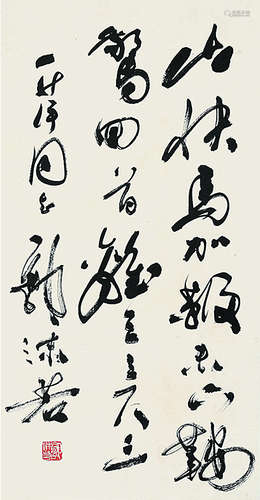 山快馬加鞭未下鞍
驚回首離天三尺三
一萍同志 郭沫若